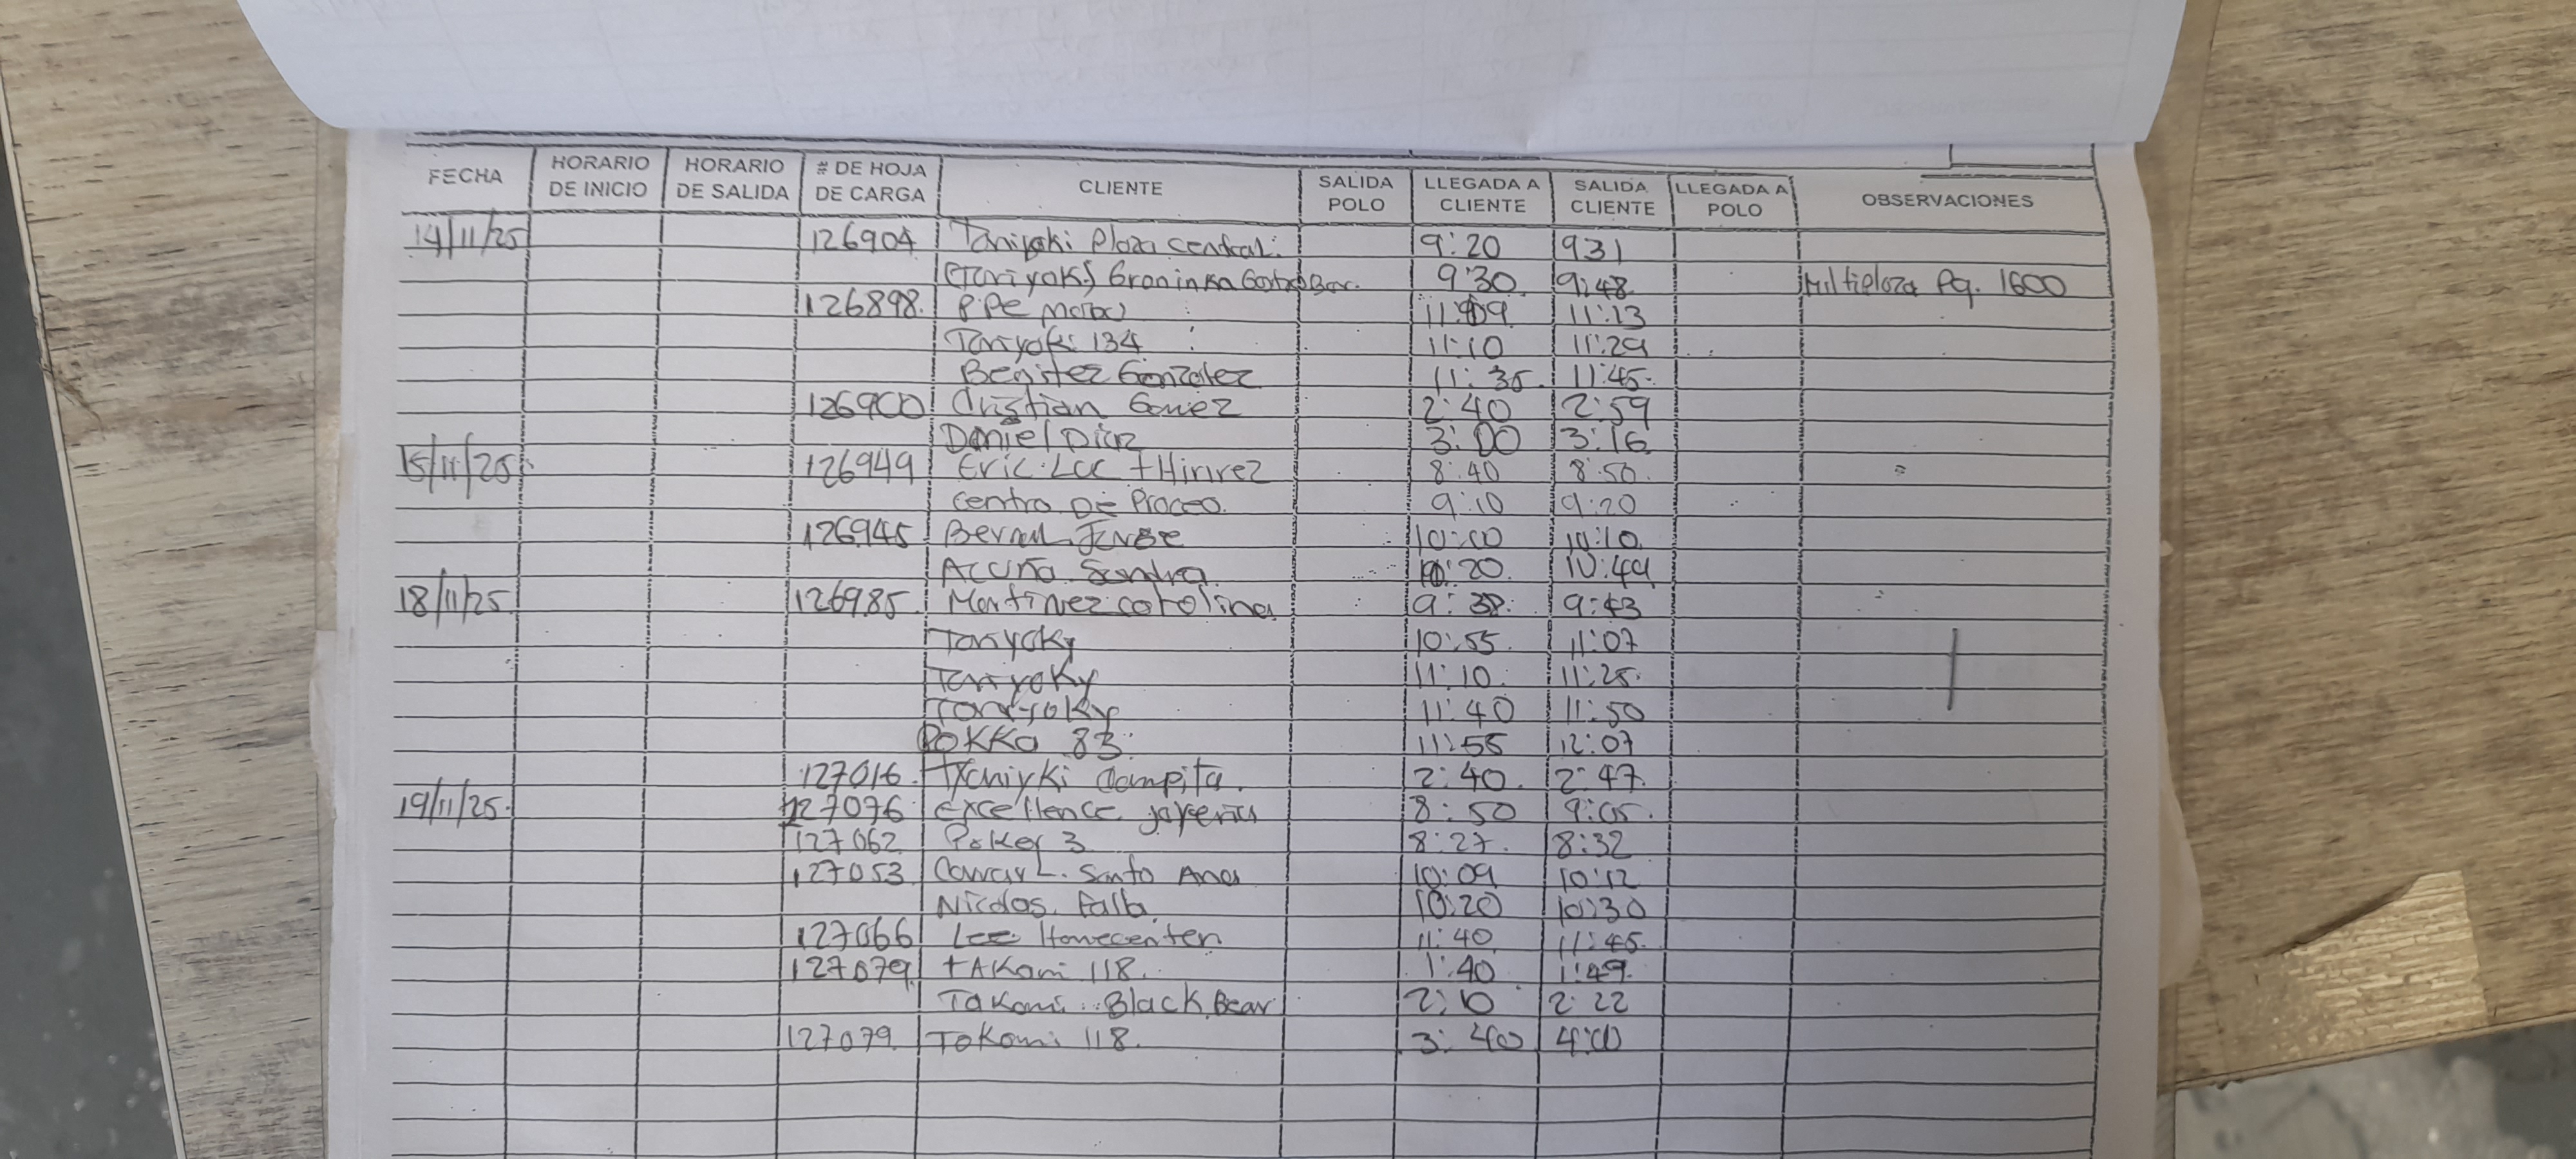 FECHA HORARIO DE INICIO HORARIO DE SALIDA # DE HOJA DE CARGA CLIENTE SALIDA POLO LLEGADA A CLIENTE SALIDA CLIENTE LLEGADA A POLO OBSERVACIONES
14/11/25 126904 Taniyaki Plaza Central. 9:20 931
(Tariyaki) 9:30 9:48 Multiplaza Pq. 1600
126898. PPE 11:09 11:13
Tariyaki 134 11:10 11:29
Benitez Gonzalez 11:35. 11:45.
126900 Cristian Gomez 2:40 2:59
Daniel Diaz 3:00 3:16
15/11/25 126949 Eric 8:40 8:50.
Centro De Proceo. 9:10 9:20
126945 Jorge 10:00 10:10
Acuña Sandra 10:20. 10:49
18/11/25 126985. Martinez carolina 9: 9:43
Taryoky 10:55. 11:07
Taryoky 11:10. 11:25.
Taryoky 11:40 11:50
POKKA 83. 11:55 12:07
127016. Campita. 2:40. 2:47.
19/11/25. 127076 Excellence joyeria 8:50 9:05.
127062 Poker 3 8:27. 8:32
127053. Santa Ana 10:09 10:12
Nicolas. Falla. 10:20 10:30
127066 Lee Homecenter 11:40 11:45.
127079. tAKami 118. 1:40 1:49.
Takami Black Bear 2:10 2:22
127079. ToKami 118. 3:40 4:00